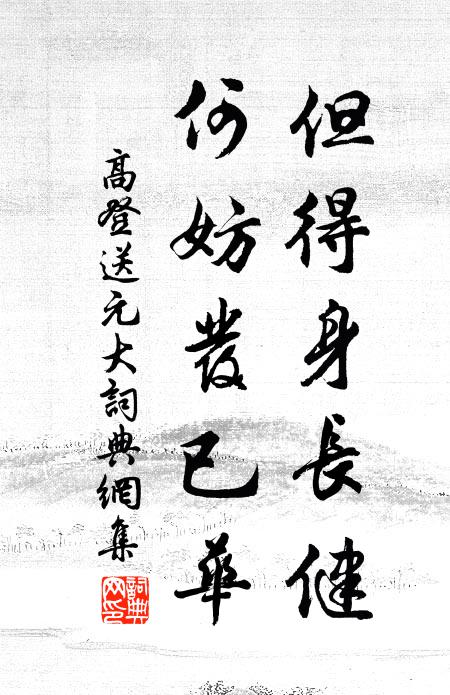 但得身長健
何妨發已華
高登送元大詞典網集
詞典網印